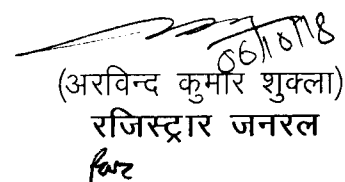 06/10/18
(अरविन्द कुमार शुक्ला)
रजिस्ट्रार जनरल